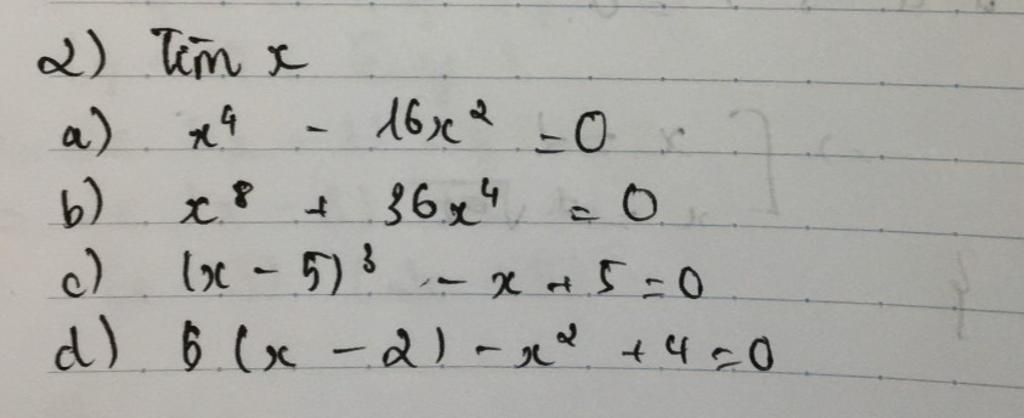 2) Tìm x
a) x⁴ - 16x² = 0
b) x⁸ + 36x⁴ = 0
c) (x - 5)³ - x + 5 = 0
d) 5 (x - 2) - x² + 4 = 0